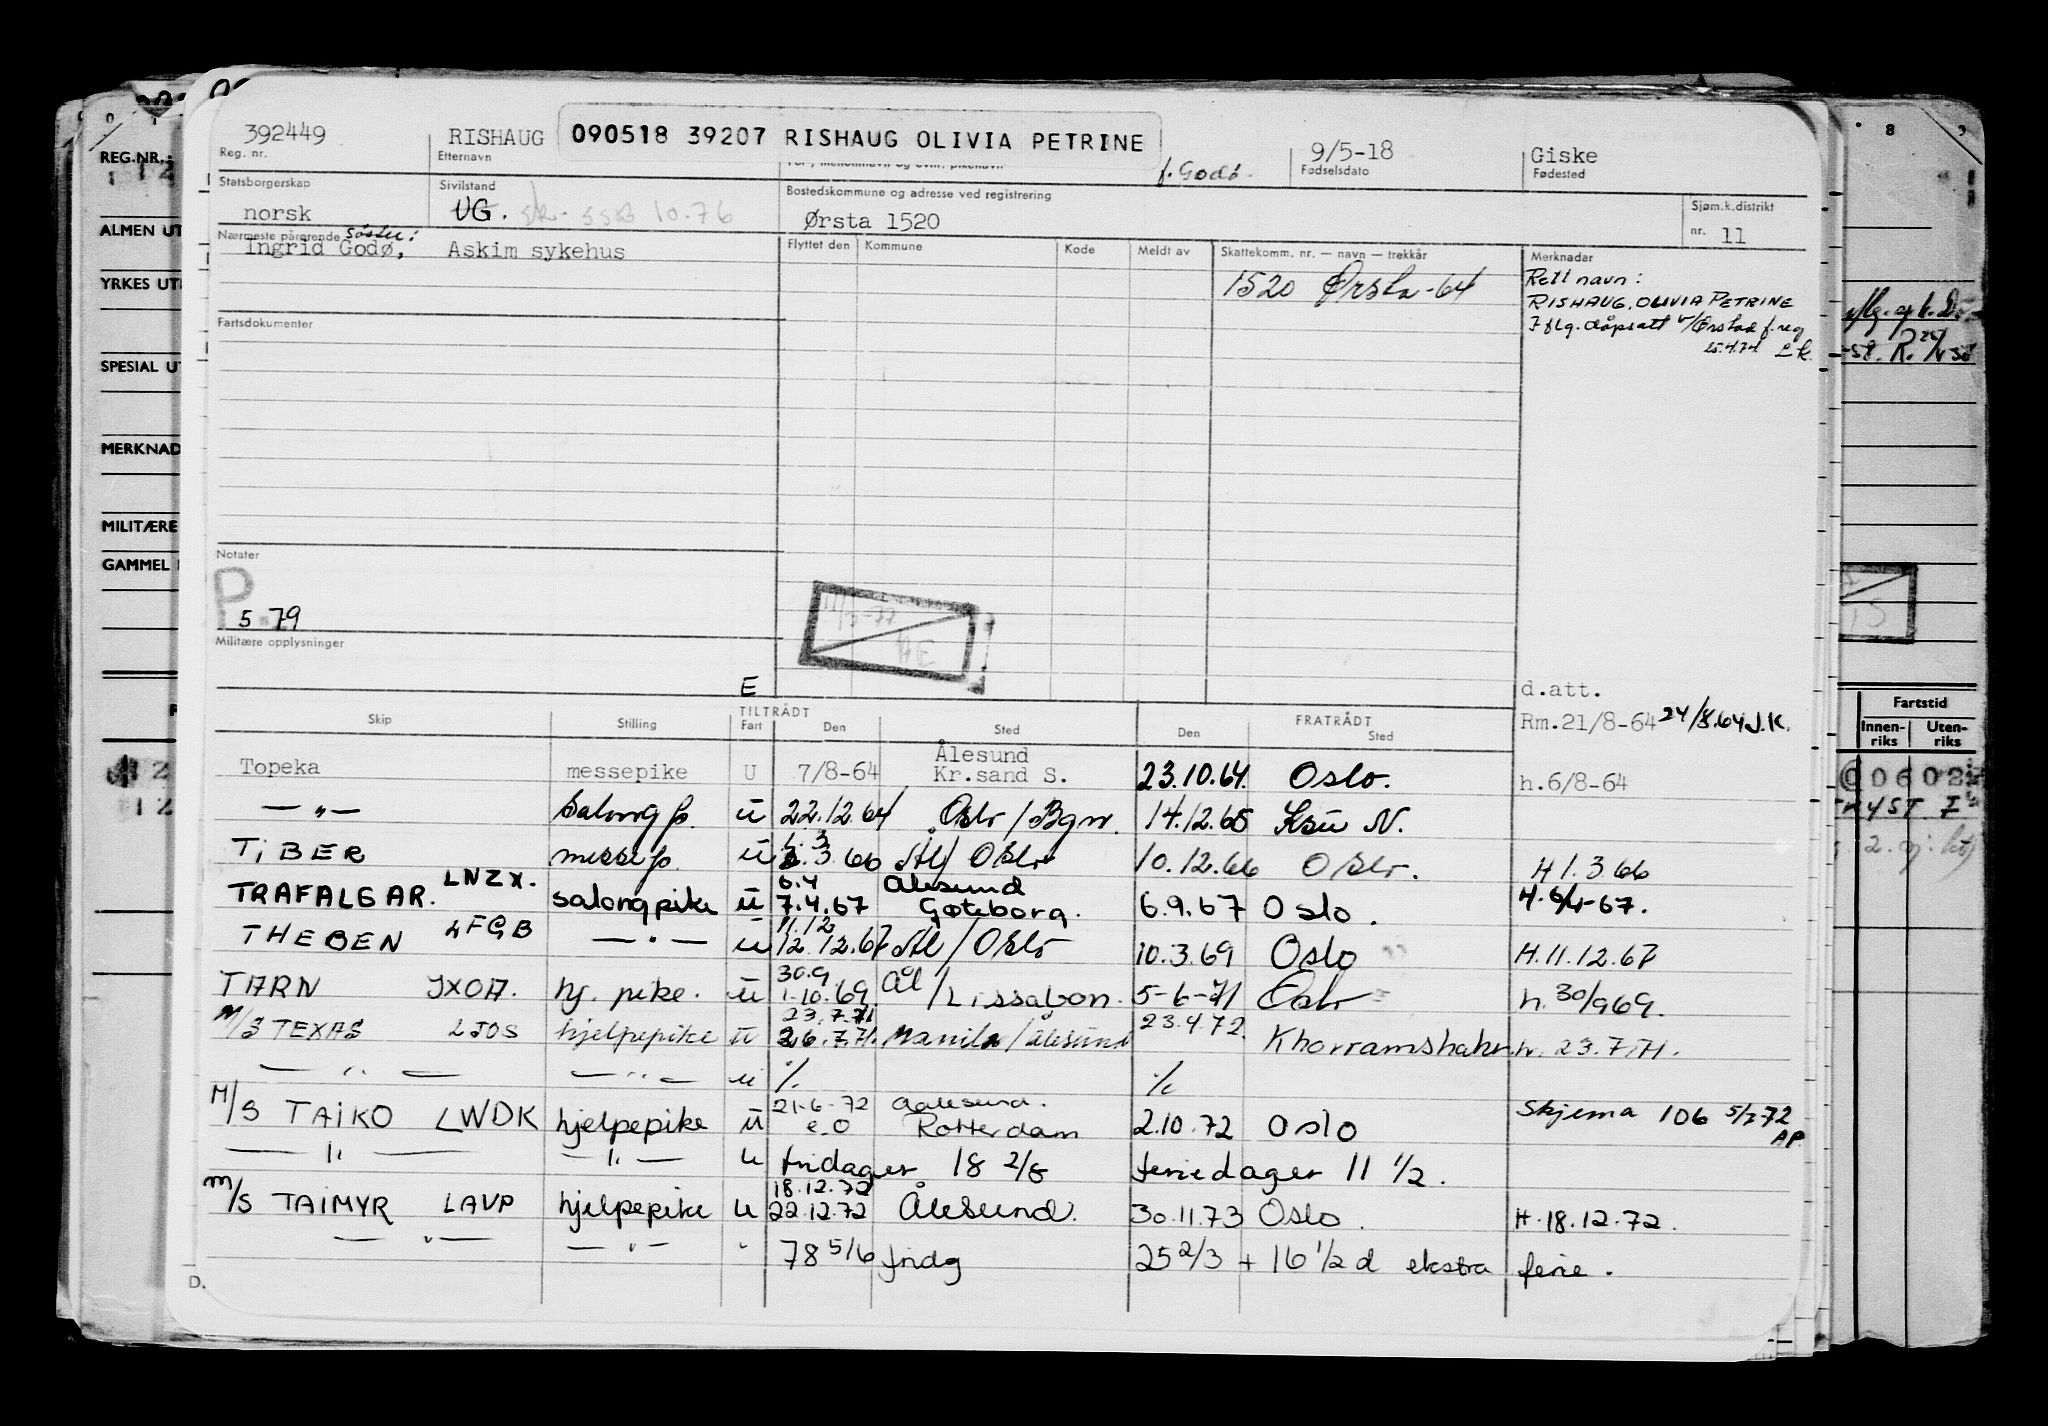 392449 RISHAUG 090518 39207 RISHAUG OLIVIA PETRINE f. Godø. 9/5-18 Giske
Reg. nr. Etternavn Fødselsdato Fødested
Statsborgerskap Sivilstand Bostedskommune og adresse ved registrering Sjøm.k.distrikt
norsk UG. 10.76 Ørsta 1520 nr. 11
Nærmeste pårørende søster: Flyttet den Kommune Kode Meldt av Skattekomm. nr. — navn — trekkår Merknader
Ingrid Godø, Askim sykehus
1520 Ørsta -64
Rett navn:
RISHAUG, OLIVIA PETRINE
25.4.74
Fartsdokumenter
Notater
P
5.79
Militære opplysninger
E
d.att.
Skip Stilling TILTRÅDT Fart Den Sted FRATRÅDT Den Sted Rm.21/8-64 24/8.64 J.K.
Topeka messepike U 7/8-64 Ålesund Kr.sand S. 23.10.64. Oslo. h.6/8-64
— " — Salong p. u 22.12.64 Oslo / Bgn. 14.12.65 Ksu N.
TiBER messep. u 3.66 Ål / Oslo 10.12.66 Oslo. H 1.3.66
TRAFALGAR. LNZX. salongpike u 6.4 7.4.67 Ålesund Gøteborg. 6.9.67 Oslo. H.6/4-67.
THEBEN LFGB — " — u 11.12 12.12.67 Ål / Oslo 10.3.69 Oslo H.11.12.67
TARN JXOA. hj. pike. u 30.9 1.10.69. Ål / Lissabon. 5-6-71 Oslo h. 30/9 69.
M/S TEXAS LJOS hjelpepike u 23.7.71 26.7.71. Manila / Ålesund 23.4.72. Khorramshahr h. 23.7.71.
— " — — " — u % %
M/S TAIKO LWDK hjelpepike u 21-6-72 e.O Aalesund. Rotterdam 2.10.72 Oslo Skjema 106 5/7 72 AP.
— " — — " — u fridager 18 2/6 feriedager 11 1/2.
M/S TAIMYR LAVP hjelpepike u 18.12.72 22.12.72 Ålesund. 30.11.73 Oslo. H.18.12.72.
— " — — " — " 78 5/6 fridg 25 2/3 + 16 1/2 d ekstra ferie.
D.
REG.NR.
ALMEN UT
YRKES UT
SPESIAL UT
MERKNAD
MILITÆRE
GAMMEL
8 9
Fartstid
Innen-riks Uten-riks